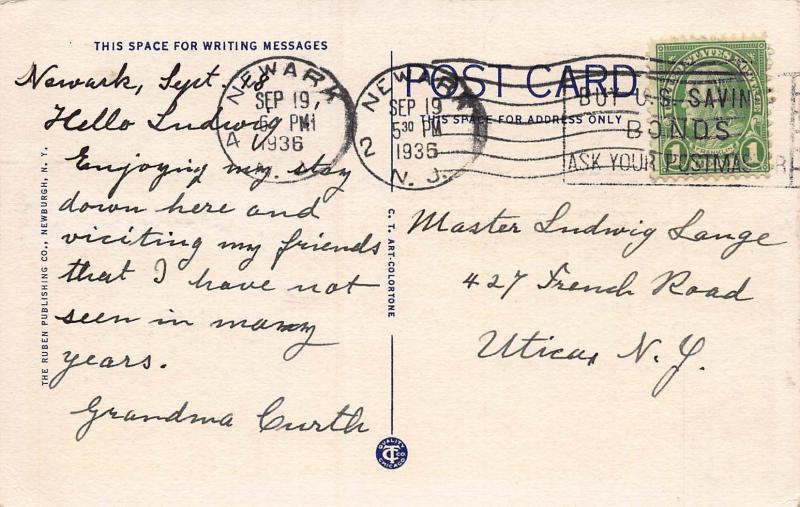 THIS SPACE FOR WRITING MESSAGES
Newark, Sept. 18
Hello Ludwig
Enjoying my stay
down here and
viciting my friends
that I have not
seen in many
years.
Grandma Curth
THE RUBEN PUBLISHING CO., NEWBURGH, N. Y.
C. T. ART-COLORTONE
QUALITY
CT CO
CHICAGO
NEWARK
SEP 19,
PM
1936
4
NEWARK
SEP 19
5 30 PM
1936
2
N. J.
POST CARD
THIS SPACE FOR ADDRESS ONLY
BUY U.S. SAVIN
BONDS
ASK YOUR POSTMASTER
1 1
Master Ludwig Lange
427 French Road
Utica, N. Y.